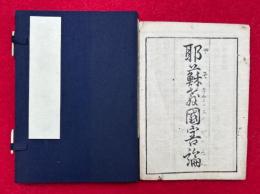 耶蘇教國害論